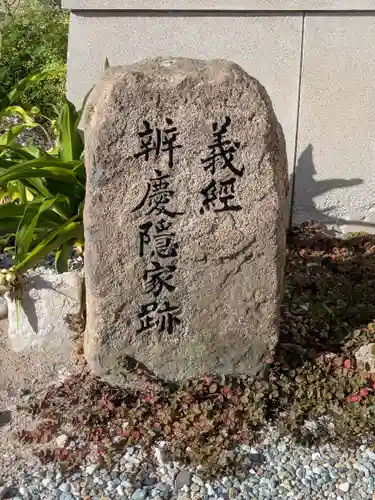 義経
辨慶隠家跡